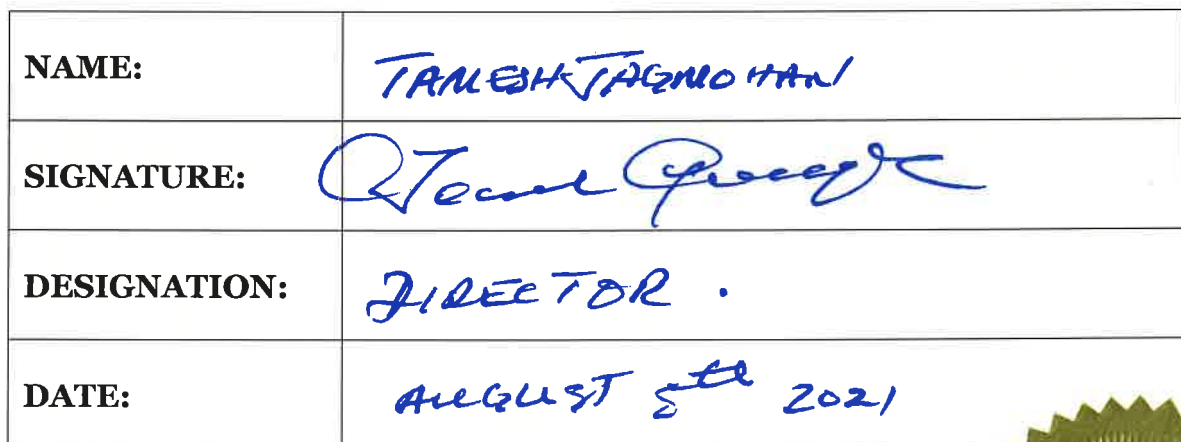 NAME: TAMESH JAGMOHAN
SIGNATURE:
DESIGNATION: DIRECTOR.
DATE: AUGUST 5th 2021